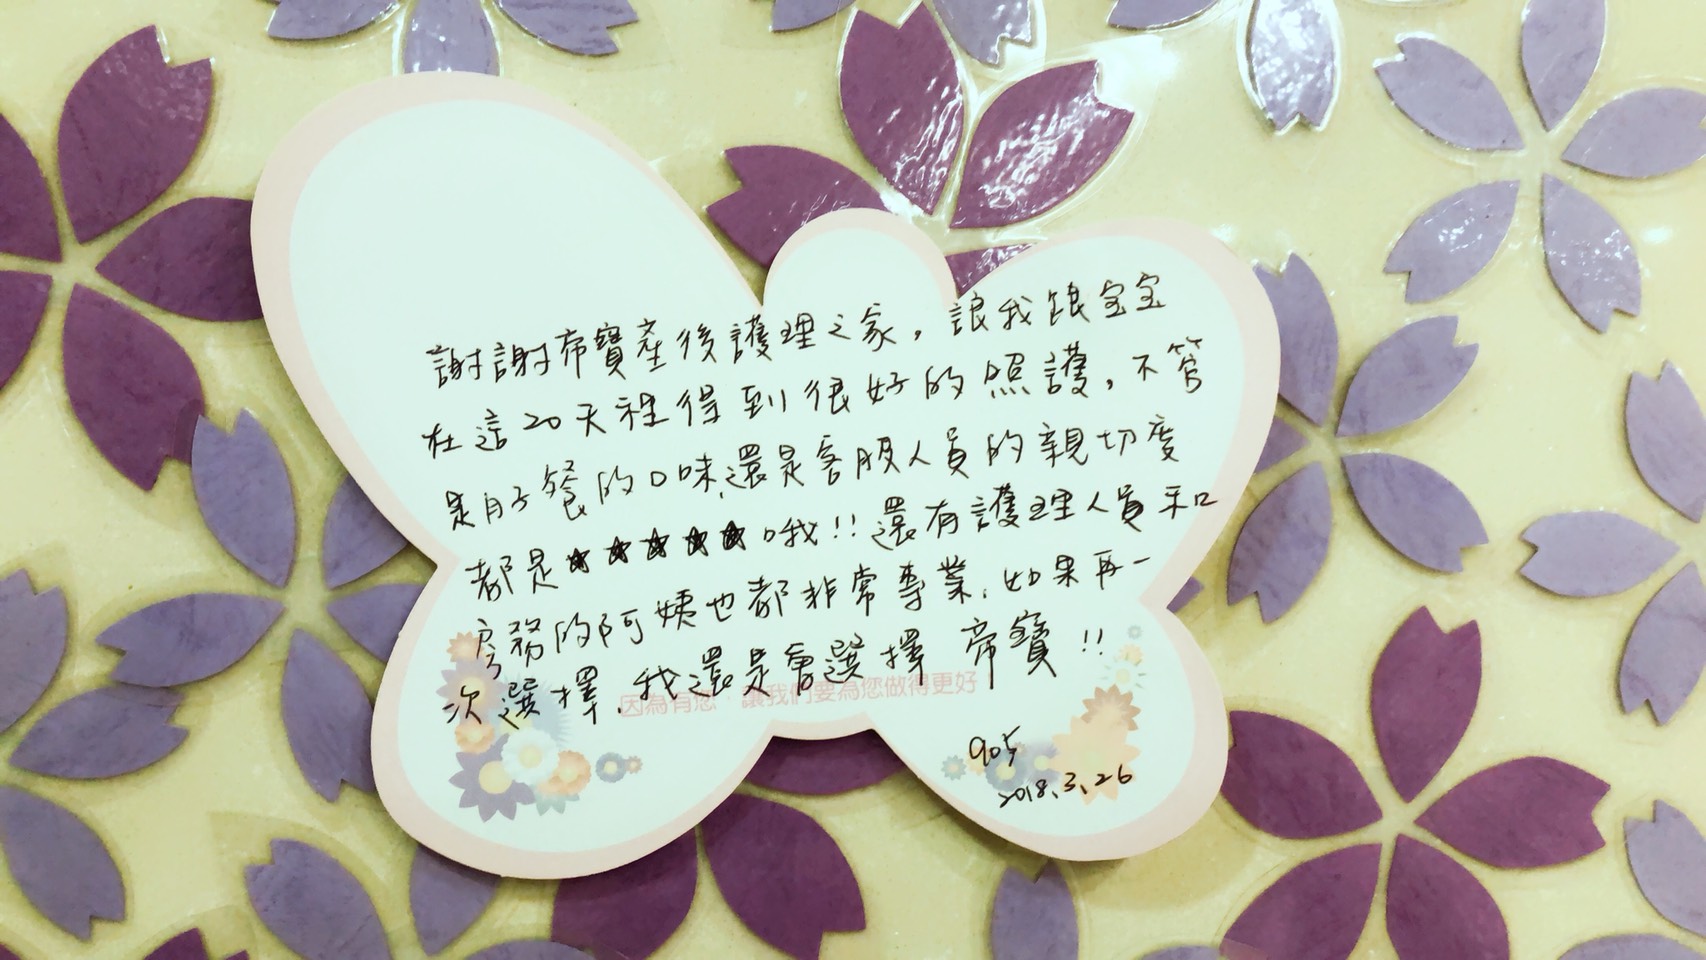 謝謝帝寶產後護理之家，讓我跟宝宝
在這20天裡得到很好的照護，不管
是月子餐的口味，還是客服人員的親切度
都是★★★★★哦!!還有護理人員和
房務的阿姨也都非常專業.如果再一
次選擇.我還是會選擇 帝寶!!
因為有您，讓我們要為您做得更好
905
2018.3.26